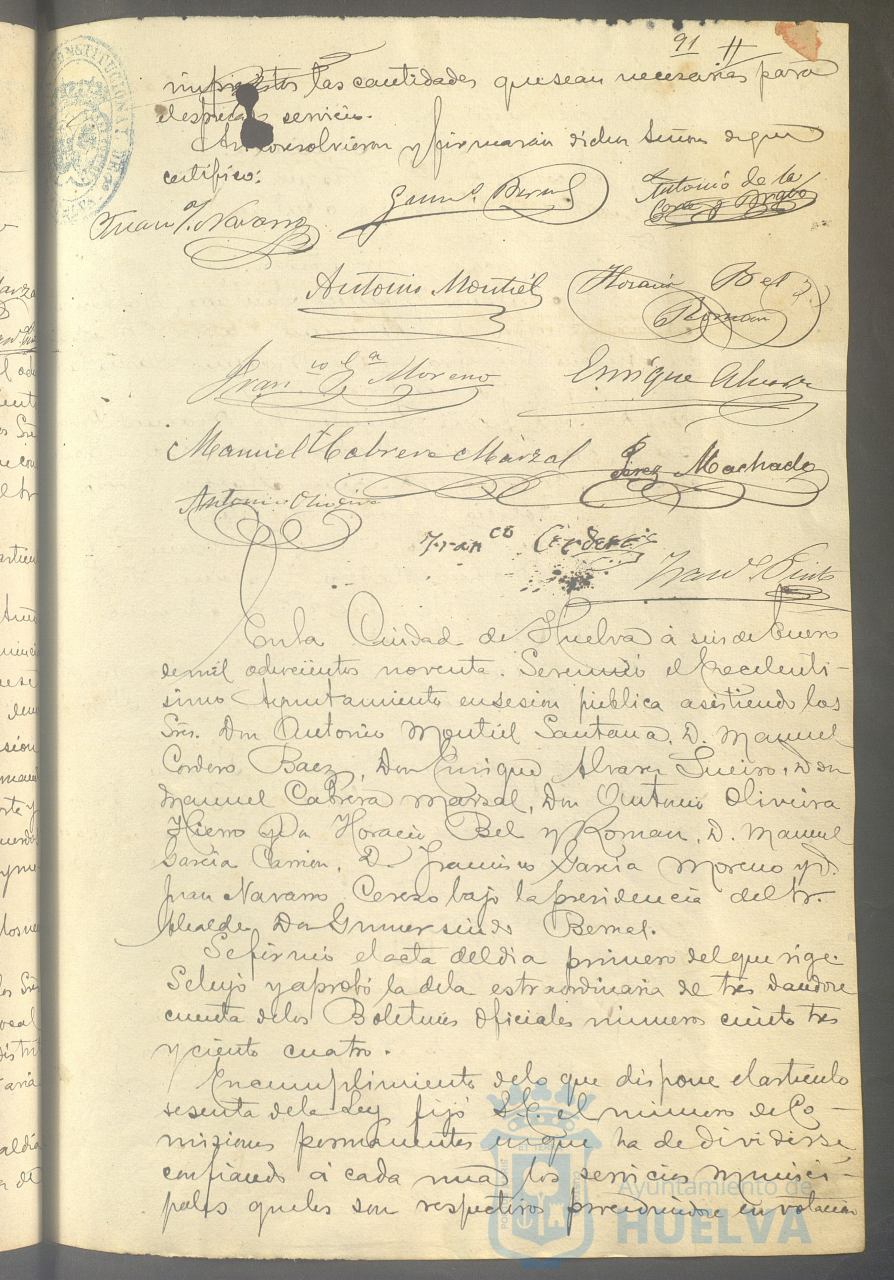 91
impuestos las cantidades que sean necesarias para
el espresado servicio.
Así resolvieron y firmaran dichos Señores de que
certifico:
Juan J. Navarro
Gum.º Bernal
Antonio de la
Corte y Bravo
Antonio Montiel
Horacio Bel y
Roman
Fran.co G.a Moreno
Enrique Alvarez
Manuel Cabrera Marzal
Perez Machado
Antonio Oliveira
Fran.co Cordero
Fran.co Pinto
En la Ciudad de Huelva á seis de Enero
de mil ochocientos noventa. Se reunió el Excelenti-
simo Ayuntamiento en sesion publica asistiendo los
Sres. Don Antonio Montiel Santana, D. Manuel
Cordero Baez, Don Enrique Alvarez Sueiro, Don
Manuel Cabrera Marzal, Don Antonio Oliveira
Hierro, Dn Horacio Bel y Roman, D. Manuel
Garcia Carrion, D. Francisco Garcia Moreno y D.
Juan Navarro Cerezo bajo la presidencia del Sr.
Alcalde Don Gumersindo Bernal.
Se firmó el acta del dia primero del que rige.
Se leyó y aprobó la dela extraordinaria de tres dandose
cuenta delos Boletines Oficiales numeros ciento tres
y ciento cuatro.
En cumplimiento delo que dispone el articulo
sesenta dela Ley fijó S.E. el numero de Co-
misiones permanentes en que ha de dividirse
confiando á cada una los servicios munici-
pales queles son respectivos procediendose en votacion
Ayuntamiento de
HUELVA